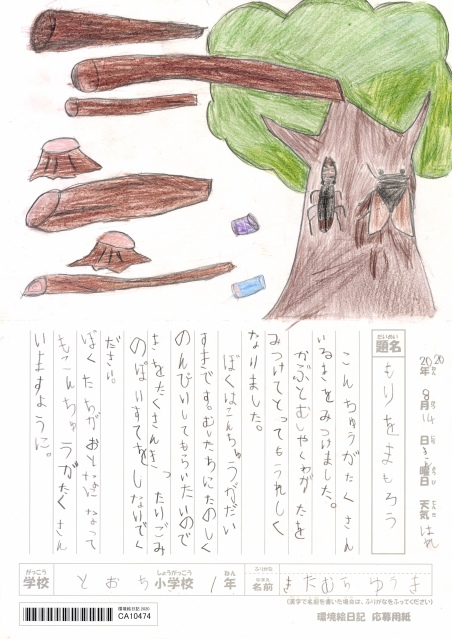 2020年 8月 14日 きん曜日 天気 はれ
だいめい
題名
もりをまもろう
こんちゅうがたくさん
いるきをみつけました。
かぶとむしやくわがたを
みつけてとってもうれしく
なりました。
ぼくはこんちゅうがだい
すきです。むしたちにたのしく
のんびりしてもらいたいので
きをたくさんきったりごみ
のぽいすてをしないでく
ださい。
ぼくたちがおとなになって
もこんちゅうがたくさん
いますように。
がっこう
学校
とおち 小学校 1年
しょうがっこう
ねん
ふりがな
名前
きたむら ゆうま
(漢字で名前を書いた場合は、ふりがなをふってください)
環境絵日記 2020
CA10474
環境絵日記 応募用紙